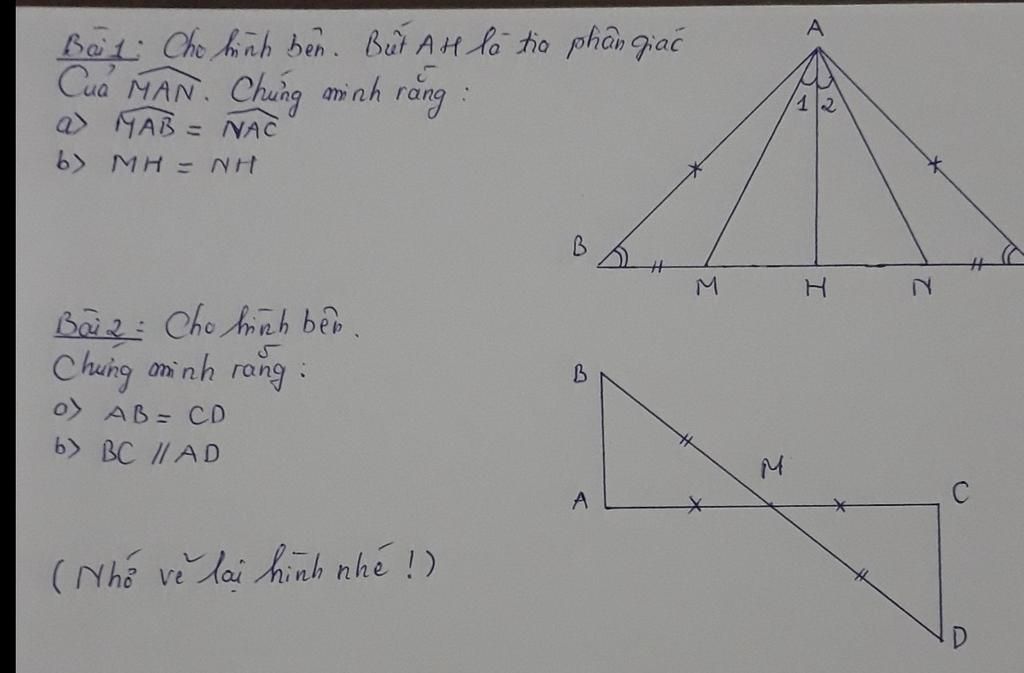 Bài 1: Cho hình bên. Biết AH là tia phân giác
Của MAN. Chứng minh rằng:
a) MAB = NAC
b) MH = NH
A
1 2
B
M H N
Bài 2: Cho hình bên.
Chứng minh rằng:
a) AB = CD
b) BC // AD
(Nhớ vẽ lại hình nhé!)
B
M
A
C
D